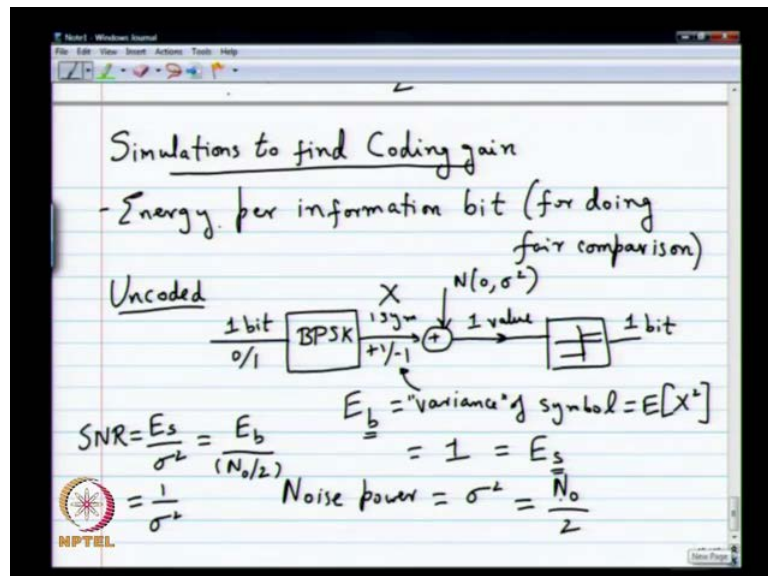 Note1 - Windows Journal
File Edit View Insert Actions Tools Help
2
Simulations to find Coding gain
- Energy per information bit (for doing
fair comparison)
Uncoded
X
N(0, σ²)
1 bit
0/1
BPSK
1 sym
+1/-1
+
1 value
1 bit
E_b = "variance" of symbol = E[X²]
= 1 = E_s
SNR = E_s/σ² = E_b/(N₀/2)
= 1/σ²
Noise power = σ² = N₀/2
NPTEL
New Page